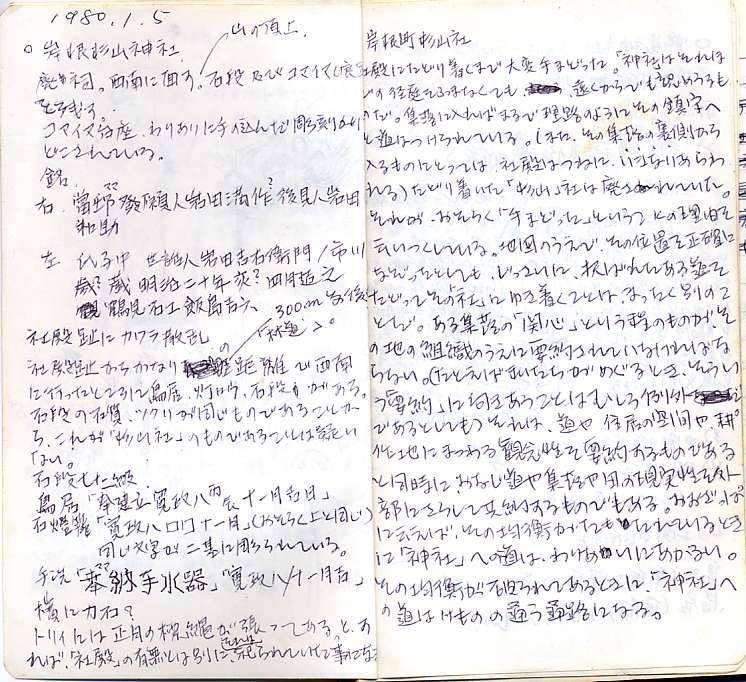 1980.1.5
山の頂上.
○ 岸根杉山神社.
廃祠。西南に面す。石段及びコマイヌ(廃
をそむす。
コマイヌ台座.わりあいに手の込んだ彫刻
どこされている。
銘.
右.當 發願人岩田満作?後見人岩田
和助
左 氏子中 世話人岩田吉右衛門/市川
歳?蔵 明治二十年亥?四月
鶴見石工飯島吉六
社殿趾にカワラ散乱
300m
「林道」。
社殿趾からかなりの距離で西南
に行ったところに鳥居.灯ロウ.石段がある。
石段の石質.ツクリが同じものであることか
ら、これが「杉山社」のものであることは疑い
ない。
石段七十二級.
鳥居「奉建立寛政八丙辰十一月吉日」
石燈籠「寛政八口口十一月」(おそらく上と同じ)
同じ文字が二基に彫られている。
手洗「奉納手水器」「寛政八/十一月吉」
横に力石?
トリイには正月の標縄が張ってある。と、あ
れば、「社殿」の有無とは別に、祀られていた事になる
岸根町杉山社
社殿にたどり着くまで大変手まどった。「神社」はそれほ
どの径庭をふまなくても、遠くからでも認めうるも
のだ。集落に入ればまるで理路のようにその鎮守へ
と道はつけられている。(また、その集落の裏側から
入るものにとっては、社殿はつねに、いきなりあらわ
れる)たどり着いた「杉山」社は廃されていた。
それが、おそらく「手まどった」ということの理由を
云いつくしている。地図のうえで、その位置を正確に
なぞったとしても、じっさいに、択ばれてある道を
たどってその「社」にゆき着くことは、まったく別のこ
とだ。ある集落の「関心」という種のものが、そ
の地の組織のうえに要約されていなければな
らない。(たとえぼくたちがめぐるとき、そうい
う「要約」に向きあうことはむしろ例外
であるとしても)それは、道や住居の空間や、耕
作地にまつわる観念性を要約するものである
と同時に、おなじ道や集落や田の現実性を外
部にさらして要約するものでもある。おおざっぱ
に云えば、その均衡がたもたれているとき
に「神社」への道は、わりあいにあかるい。
その均衡が破られてあるときに、「神社」へ
の道はけものの通う通路になる。